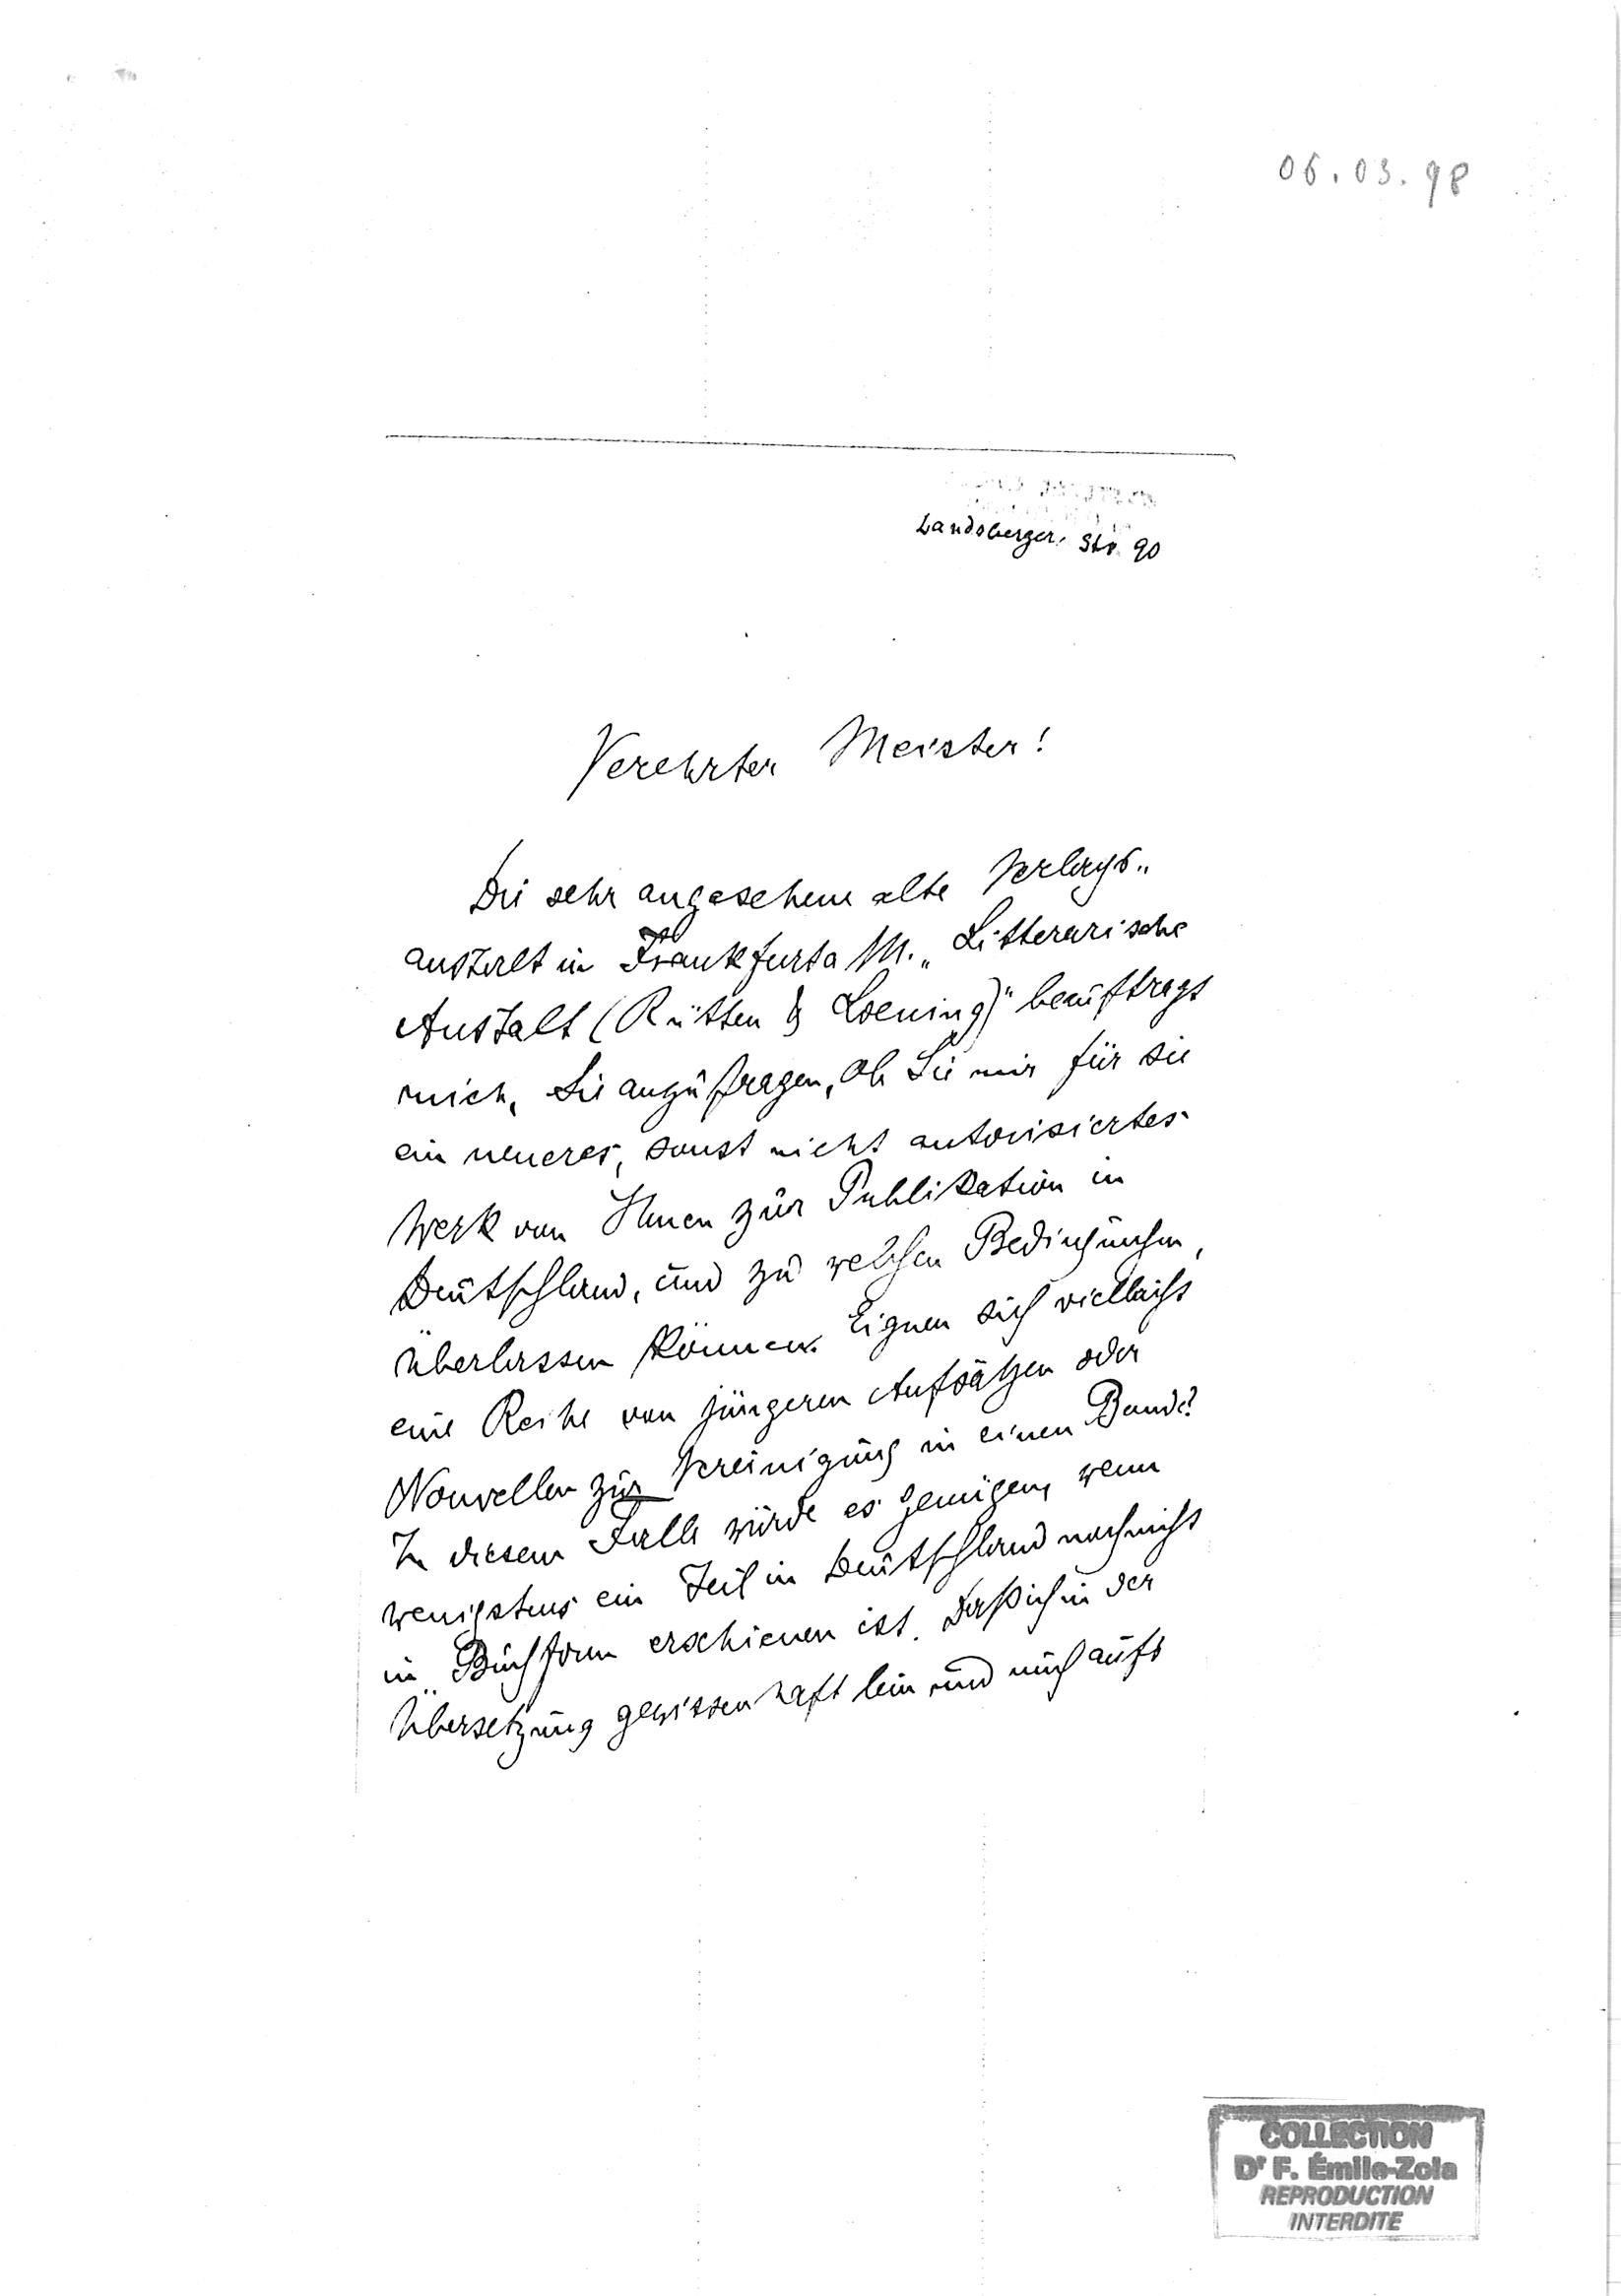 06.03.98
Landsberger Str. 90
Verehrter Meister!
Die sehr angesehene alte Verlags„
anstalt in Frankfurt a M. „Litterarische
Anstalt (Rütten & Loening)“ beauftragt
mich, Sie anzufragen, ob Sie mir für sie
ein neueres, sonst nicht autorisiertes
Werk von Ihnen zur Publikation in
Deutschland, und zu welchen Bedingungen,
überlassen können. Eignen sich vielleicht
eine Reihe von jüngeren Aufsätzen oder
Nouvellen zur Vereinigung in einen Band?
In diesem Falle würde es genügen, wenn
wenigstens ein Teil in Deutschland noch nicht
in Buchform erschienen ist. Daß ich in der
Übersetzung gewissenhaft bin und mich aufs
COLLECTION
Dr F. Émile-Zola
REPRODUCTION
INTERDITE